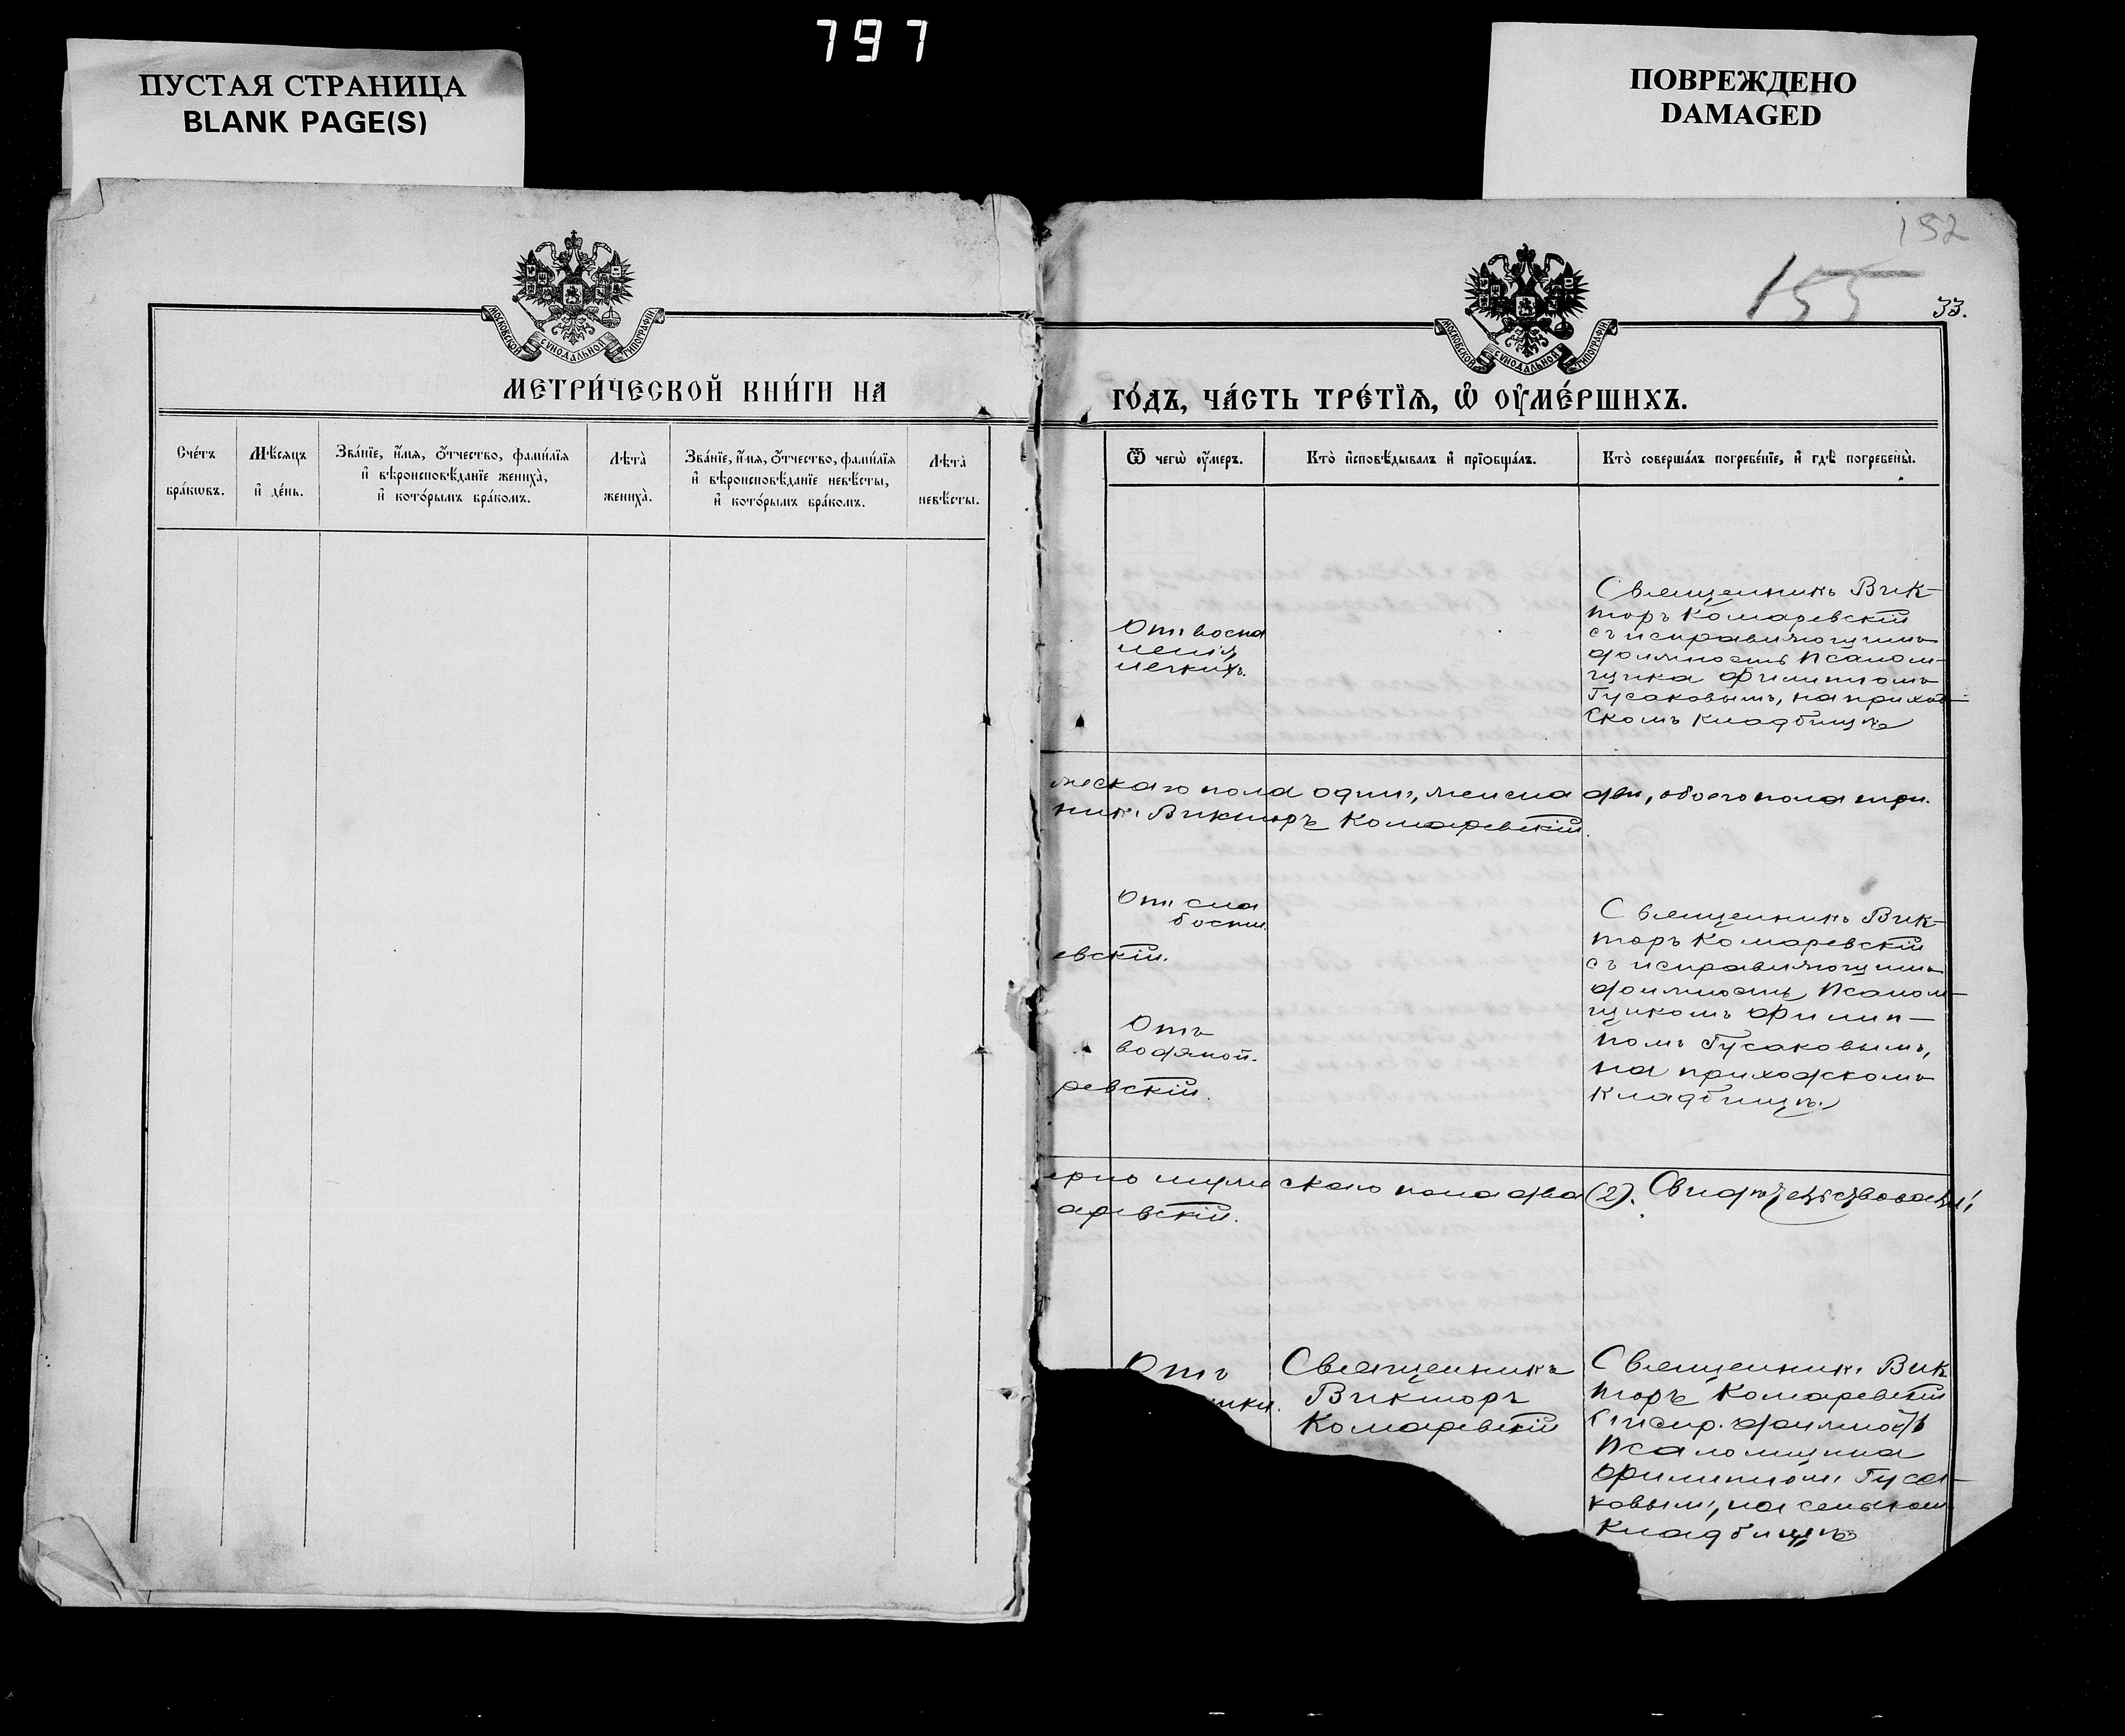 797
ПУСТАЯ СТРАНИЦА
BLANK PAGE(S)
ПОВРЕЖДЕНО
DAMAGED
МОСКОВСКОЙ СѴНОДАЛЬНОЙ ТИПОГРАФІИ
МЕТРИ́ЧЕСКОЙ КНИ́ГИ НА
Сче́тъ бра́кѡвъ.
Мѣ́сяцъ и҆ де́нь.
Зва́нїе, и҆́мя, ѻ҆́тчество, фами́лїя
и҆ вѣроисповѣ́данїе жениха̀,
и҆ кото́рымъ бра́комъ.
Лѣта̀ жениха̀.
Зва́нїе, и҆́мя, ѻ҆́тчество, фами́лїя
и҆ вѣроисповѣ́данїе невѣ́сты,
и҆ кото́рымъ бра́комъ.
Лѣта̀ невѣ́сты.
152
155
33.
МОСКОВСКОЙ СѴНОДАЛЬНОЙ ТИПОГРАФІИ
ГО́ДЪ, ЧА́СТЬ ТРЕ́ТЇѦ, Ѡ҆ ОУ҆МЕ́РШИХЪ.
Ѿ чегѡ̀ ѹ҆́меръ.
Кто̀ и҆сповѣ́дывалъ и҆ прїѻбща́лъ.
Кто̀ соверша́лъ погребе́нїе, и҆ гдѣ̀ погребены̀.
Отъ воспа
ленія
легкихъ.
Священникъ Вик-
торъ Комаревскій
съ исправляющимъ
должность псалом-
щика Филиппомъ
Гусаковымъ, на приход-
скомъ кладбищѣ
жескаго пола одинъ, женска два, обоего пола три.
никъ Викторъ Комаревскій.
Отъ сла
бости.
евскій.
Отъ
водяной.
ревскій.
Священникъ Вик-
торъ Комаревскій
съ исправляющимъ
должность псалом-
щикомъ Филип-
помъ Гусаковымъ,
на приходскомъ
кладбищѣ.
мужескаго пола два (2). Свидѣтельствовали:
аревскій.
Отъ
Священникъ
Викторъ
Комаревскій
Священникъ Вик
торъ Комаревскій
съ испр. должность
псаломщика
Филиппомъ Гуса-
ковымъ, на сельском
кладбищѣ